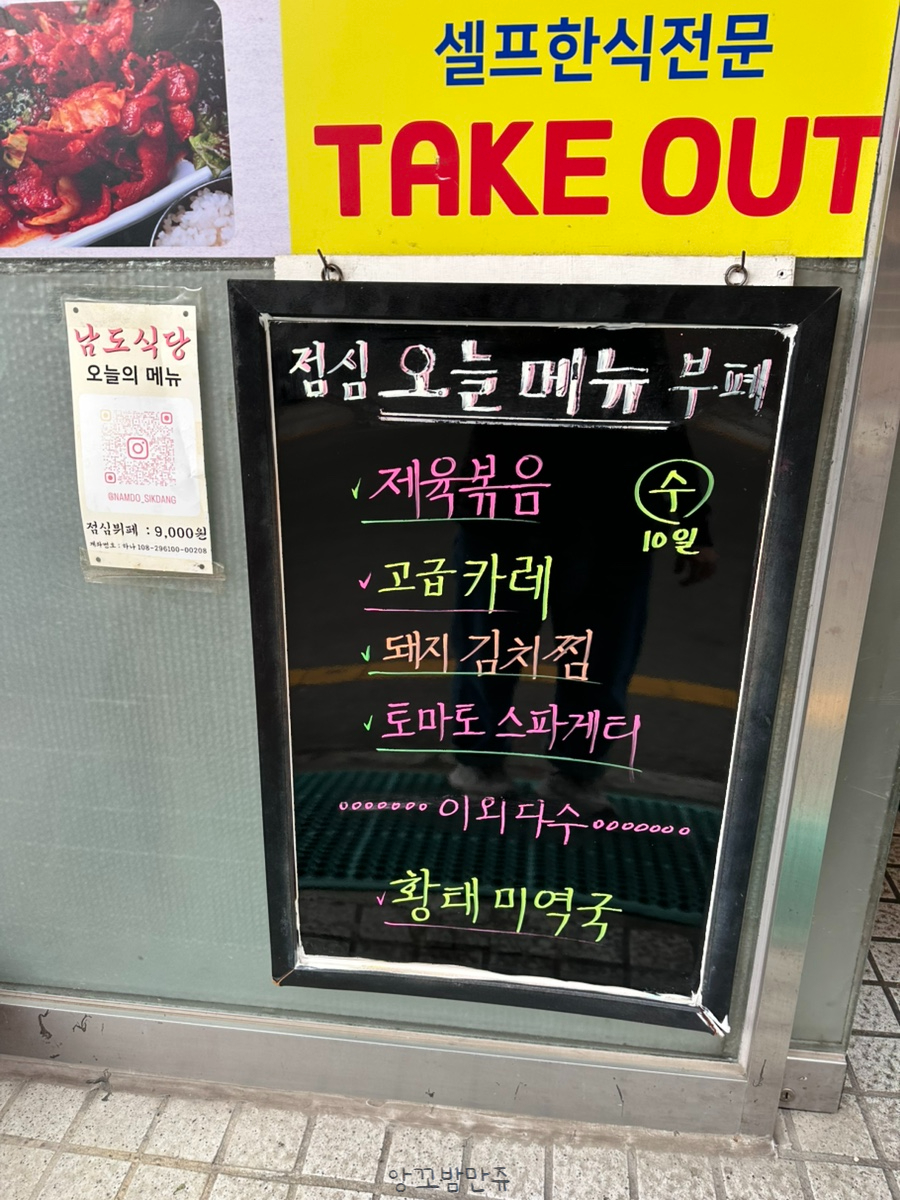 셀프한식전문
TAKE OUT
남도식당
오늘의 메뉴
@NAMDO_SIKDANG
점심뷔페 : 9,000원
계좌번호 : 하나 108-296100-00208
점심 오늘 메뉴 부페
✓ 제육볶음
수
10일
✓ 고급 카레
✓ 돼지 김치찜
✓ 토마토 스파게티
ooooooo 이외 다수 ooooooo
✓ 황태 미역국
앙꼬밤만쥬